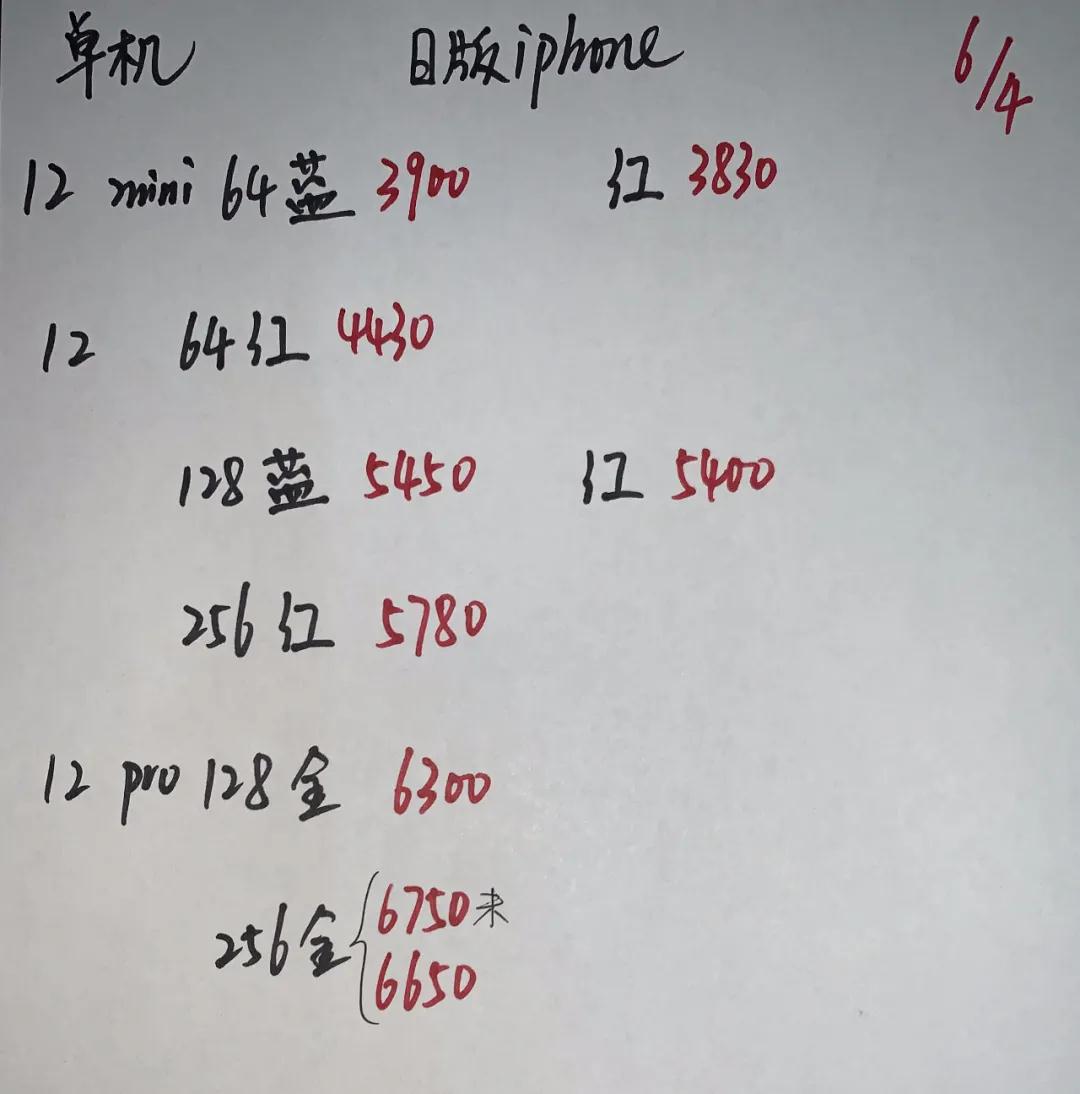 单机 日版iphone 6/4
12 mini 64蓝 3900 红 3830
12 64红 4430
128蓝 5450 红 5400
256红 5780
12 pro 128金 6300
256金 { 6750未
6650